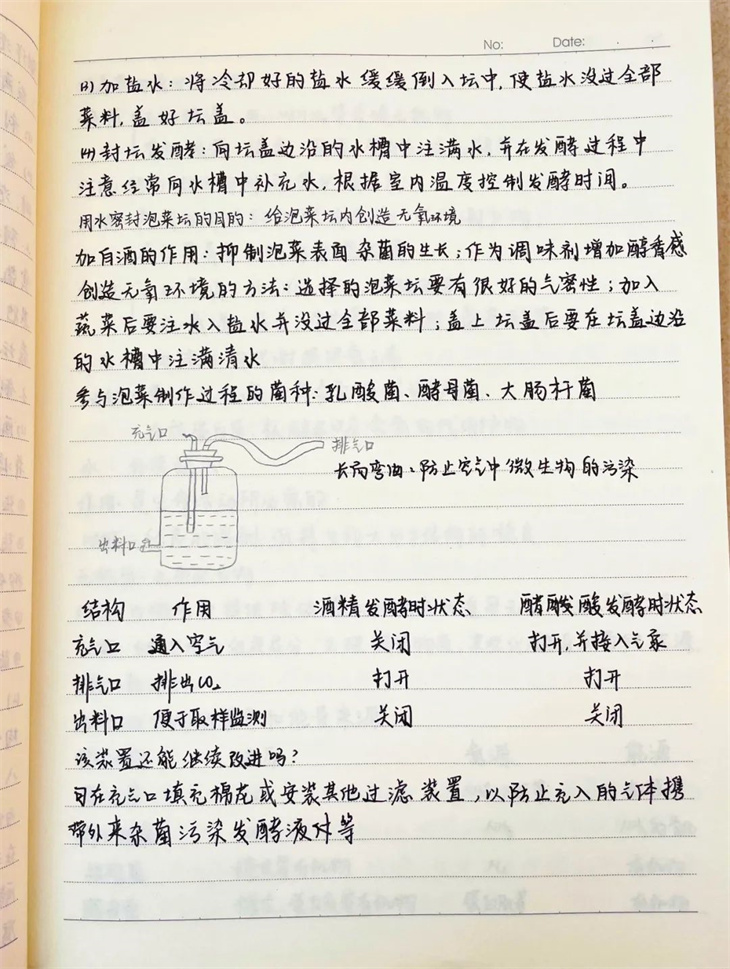 No:        Date:    ·    ·
(3)加盐水：将冷却好的盐水缓缓倒入坛中，使盐水没过全部
菜料，盖好坛盖。
(4)封坛发酵：向坛盖边沿的水槽中注满水，并在发酵过程中
注意经常向水槽中补充水，根据室内温度控制发酵时间。
用水密封泡菜坛的目的：给泡菜坛内创造无氧环境
加白酒的作用：抑制泡菜表面杂菌的生长；作为调味剂增加醇香感
创造无氧环境的方法：选择的泡菜坛要有很好的气密性；加入
蔬菜后要注水入盐水并没过全部菜料；盖上坛盖后要在坛盖边沿
的水槽中注满清水
参与泡菜制作过程的菌种：乳酸菌、酵母菌、大肠杆菌
充气口
排气口
长而弯曲：防止空气中微生物的污染
出料口
结构 作用 酒精发酵时状态 醋酸发酵时状态
充气口 通入空气 关闭 打开，并接入气泵
排气口 排出CO₂ 打开 打开
出料口 便于取样监测 关闭 关闭
该装置还能继续改进吗？
可在充气口填充棉花或安装其他过滤装置，以防止充入的气体携
带外来杂菌污染发酵液体等